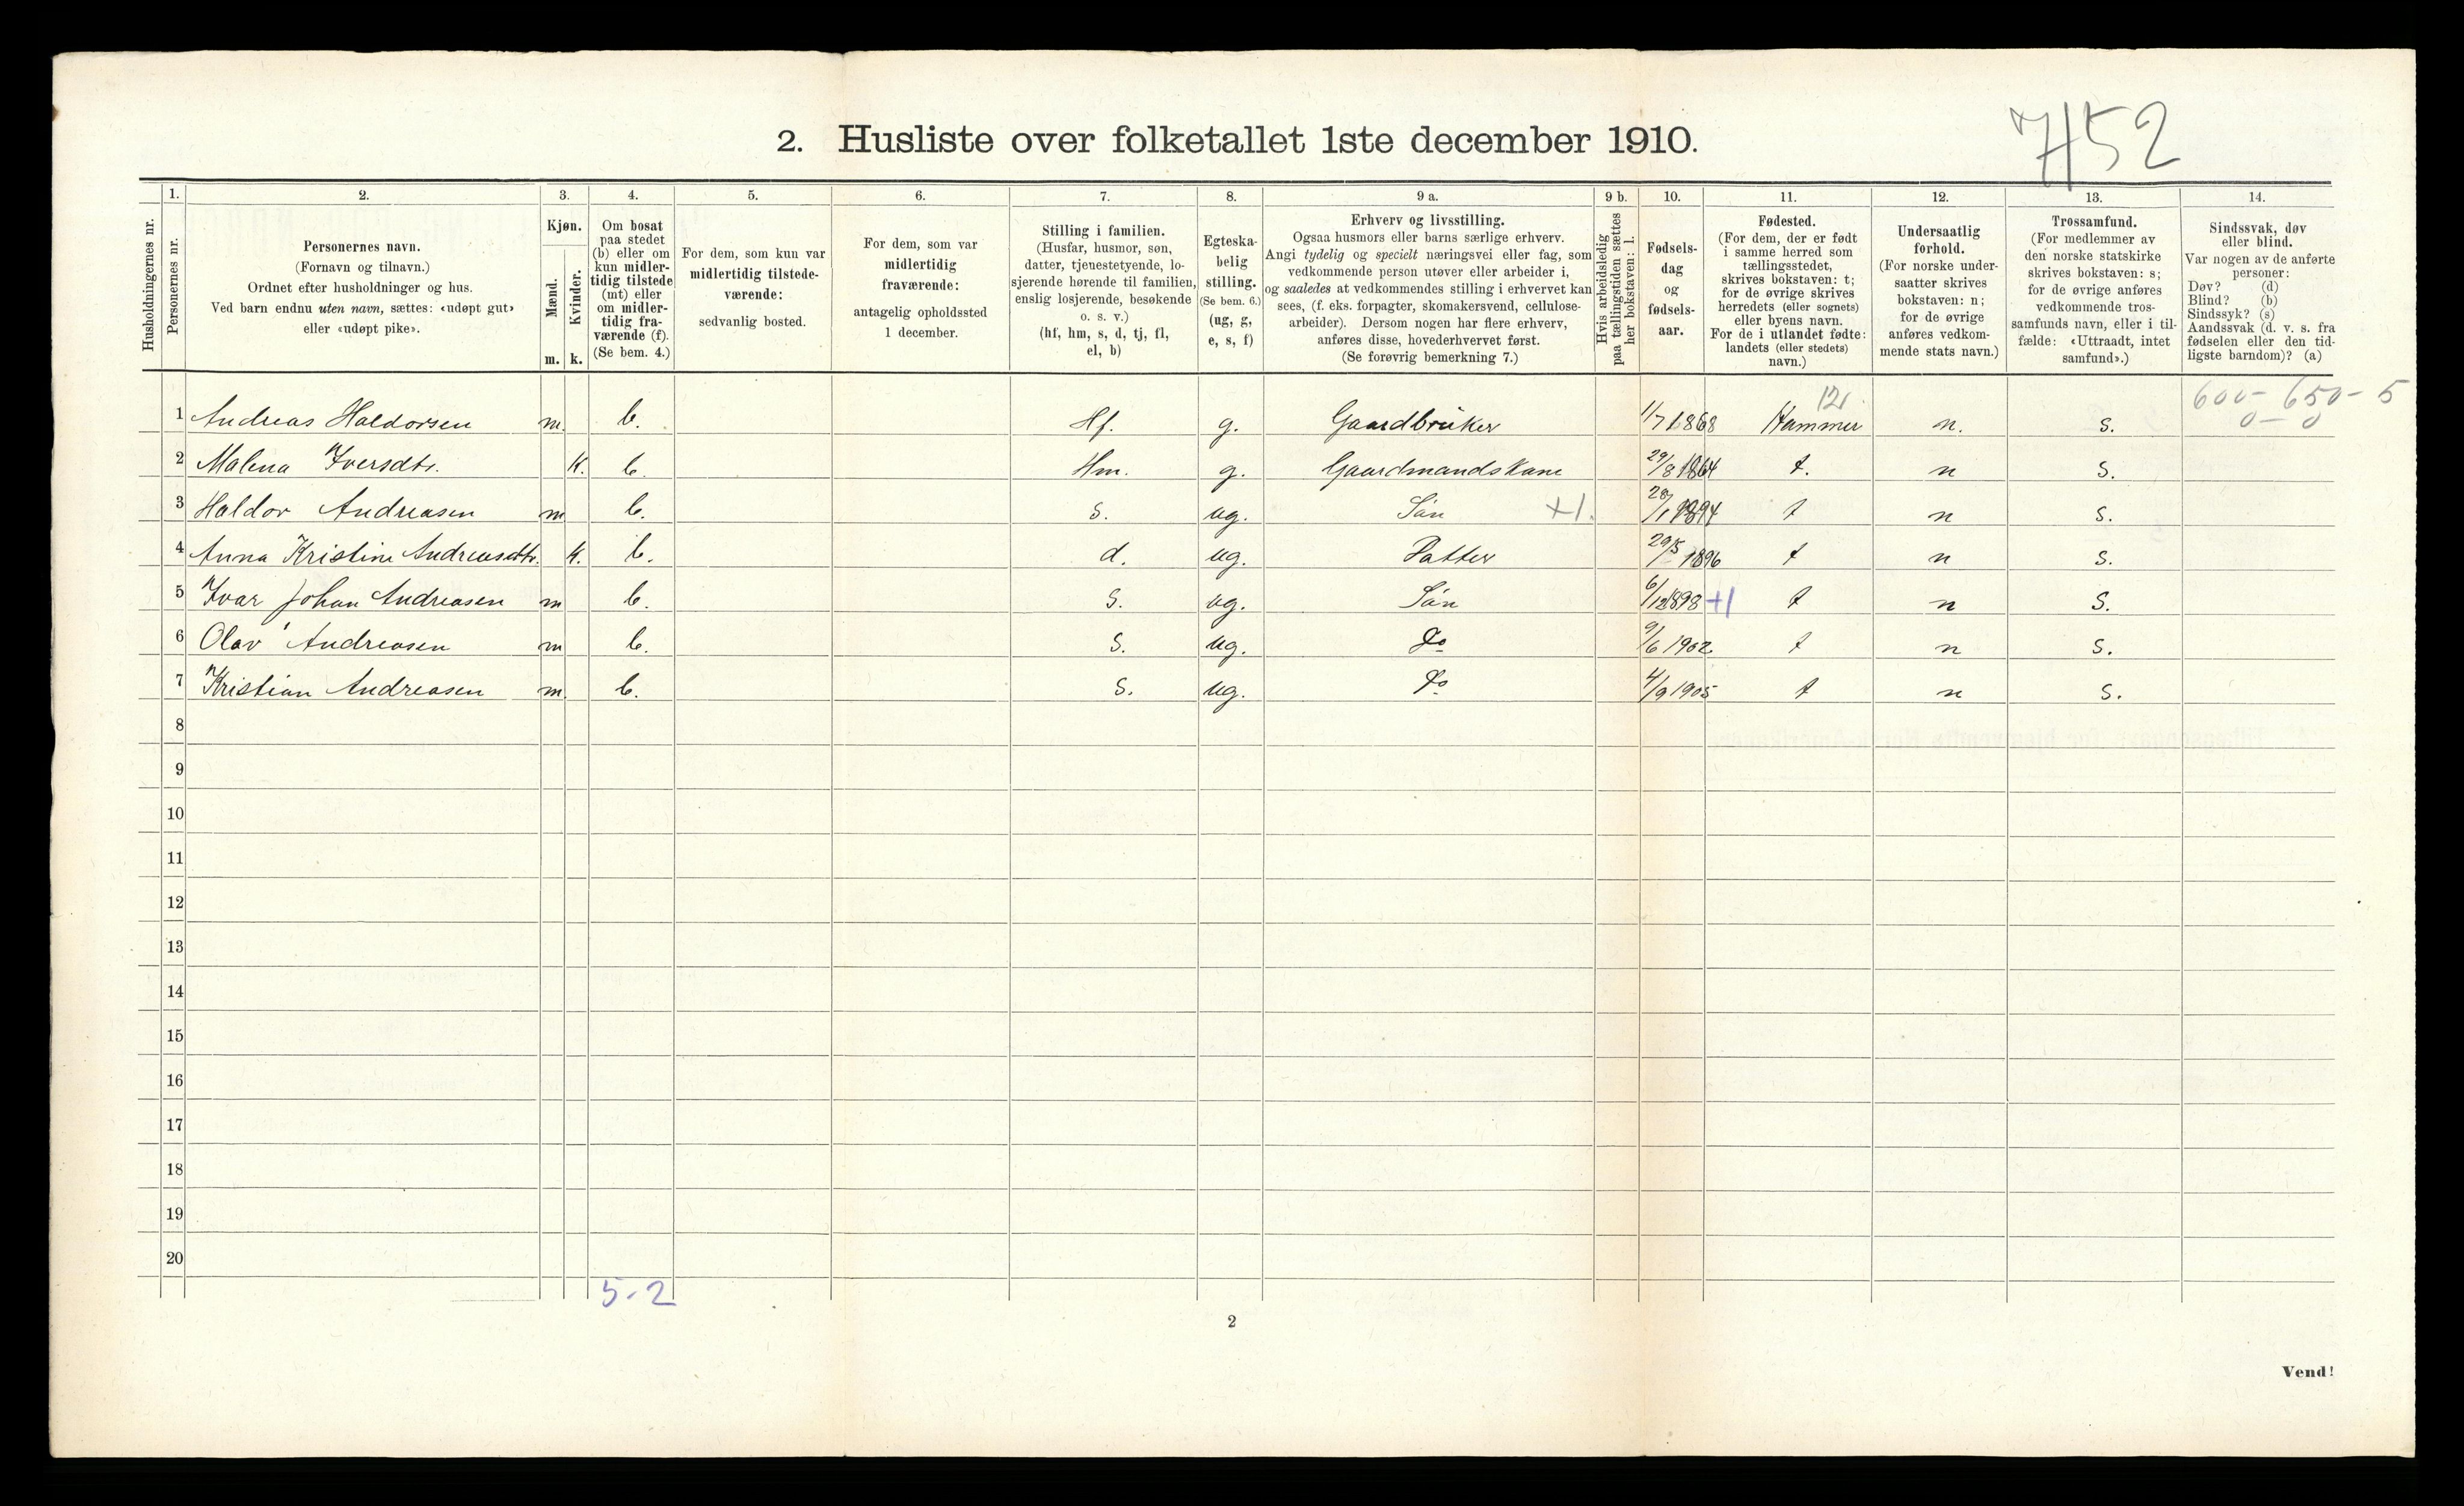 7152
2. Husliste over folketallet 1ste december 1910.
Husholdningernes nr.
1. Personernes nr.
2. Personernes navn.
(Fornavn og tilnavn.)
Ordnet efter husholdninger og hus.
Ved barn endnu uten navn, sættes: «udøpt gut»
eller «udøpt pike».
3. Kjøn.
Mænd. m.
Kvinder. k.
4. Om bosat
paa stedet
(b) eller om
kun midler-
tidig tilstede
(mt) eller
om midler-
tidig fra-
værende (f).
(Se bem. 4.)
5. For dem, som kun var
midlertidig tilstede-
værende:
sedvanlig bosted.
6. For dem, som var
midlertidig
fraværende:
antagelig opholdssted
1 december.
7. Stilling i familien.
(Husfar, husmor, søn,
datter, tjenestetyende, lo-
sjerende hørende til familien,
enslig losjerende, besøkende
o. s. v.)
(hf, hm, s, d, tj, fl,
el, b)
8. Egteska-
belig
stilling.
(Se bem. 6.)
(ug, g,
e, s, f)
9 a. Erhverv og livsstilling.
Ogsaa husmors eller barns særlige erhverv.
Angi tydelig og specielt næringsvei eller fag, som
vedkommende person utøver eller arbeider i,
og saaledes at vedkommendes stilling i erhvervet kan
sees, (f. eks. forpagter, skomakersvend, cellulose-
arbeider). Dersom nogen har flere erhverv,
anføres disse, hovederhvervet først.
(Se forøvrig bemerkning 7.)
9 b. Hvis arbeidsledig
paa tællingstiden sættes
her bokstaven: l.
10. Fødsels-
dag
og
fødsels-
aar.
11. Fødested.
(For dem, der er født
i samme herred som
tællingsstedet,
skrives bokstaven: t;
for de øvrige skrives
herredets (eller sognets)
eller byens navn.
For de i utlandet fødte:
landets (eller stedets)
navn.)
12. Undersaatlig
forhold.
(For norske under-
saatter skrives
bokstaven: n;
for de øvrige
anføres vedkom-
mende stats navn.)
13. Trossamfund.
(For medlemmer av
den norske statskirke
skrives bokstaven: s;
for de øvrige anføres
vedkommende tros-
samfunds navn, eller i til-
fælde: «Uttraadt, intet
samfund».)
14. Sindssvak, døv
eller blind.
Var nogen av de anførte
personer:
Døv? (d)
Blind? (b)
Sindssyk? (s)
Aandssvak (d. v. s. fra
fødselen eller den tid-
ligste barndom)? (a)
12 600- 650- 5
0 - 0
1 Andreas Haldorsen m. b. Hf. g. Gaardbruker 1/7 1868 Hammer n. s.
2 Malena Iversdtr. K. b. Hm. g. Gaardmandskone 29/8 1864 t. n s.
3 Haldor Andreasen m b. s. ug. Sön +1. 1894 t n s.
4 Anna Kristine Andreasdtr. K. b. d. ug. Datter 1896 t n s.
5 Ivar Johan Andreasen m b. s. ug. Sön 6/12 1898 +1 t n s.
6 Olav Andreasen m b. s. ug. Do 9/6 1902 t n s.
7 Kristian Andreasen m. b. s. ug. Do 4/9 1905 t n s.
8
9
10
11
12
13
14
15
16
17
18
19
20
5-2
2
Vend!